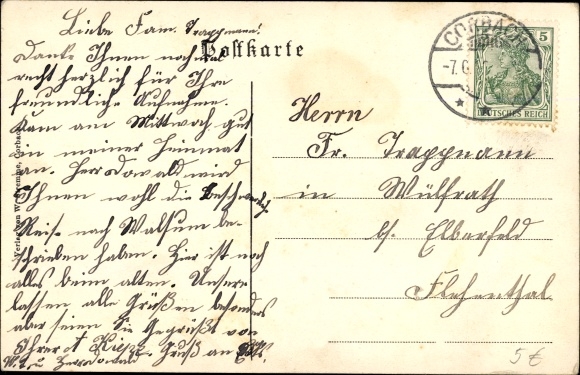 Liebe Fam. Trappmann!
Danke Ihnen nochmal
recht herzlich für Ihre
freundliche Aufnahme.
Kam am Mittwoch gut
in meiner Heimat
an. Herr Dowald wird
Ihnen wohl die
Reise nach Walsum be-
schrieben haben. Hier ist noch
alles beim alten. Unsere
lassen alle Grüßen besonders
aber seien Sie Gegrüßt von
Ihrer
Gruß an
Postkarte
CORBACH
-7.6
5
DEUTSCHES REICH
Herrn
Fr. Trappmann
in Wülfrath
bs. Elberfeld
Flehenthal
Verlag von W. Corbach
5 €